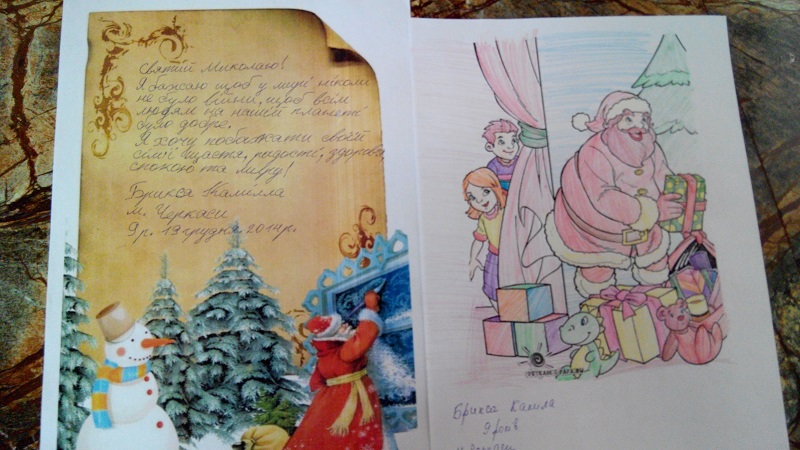 Святий Миколаю!
Я бажаю щоб у мирі ніколи
не було війни, щоб всім
людям на нашій планеті
було добре.
Я хочу побажати своїй
сім'ї щастя, радості, здоровя,
спокою та миру!
Брикса Камілла
м. Черкаси
9 р. 19 грудня 2014р.
Брикса Каміла
9 років